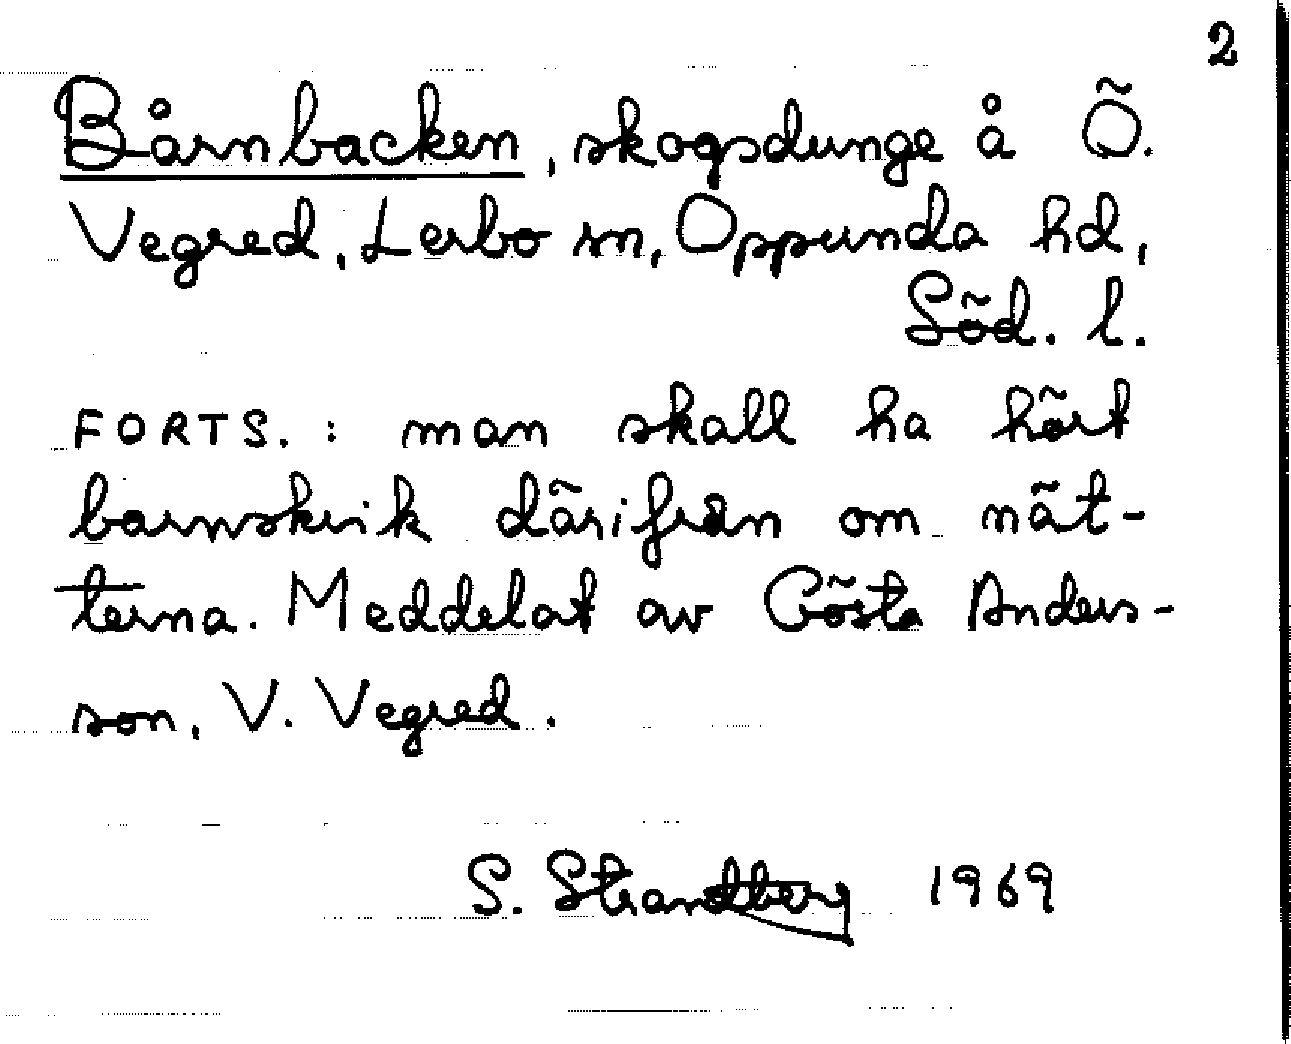 2
Bårnbacken, skogsdunge å Ö.
Vegred, Lerbo sn, Oppunda hd,
Söd. l.
FORTS. : man skall ha hört
barnskrik därifrån om nät-
terna. Meddelat av Gösta Anders-
son, V. Vegred.
S. Strandberg 1969